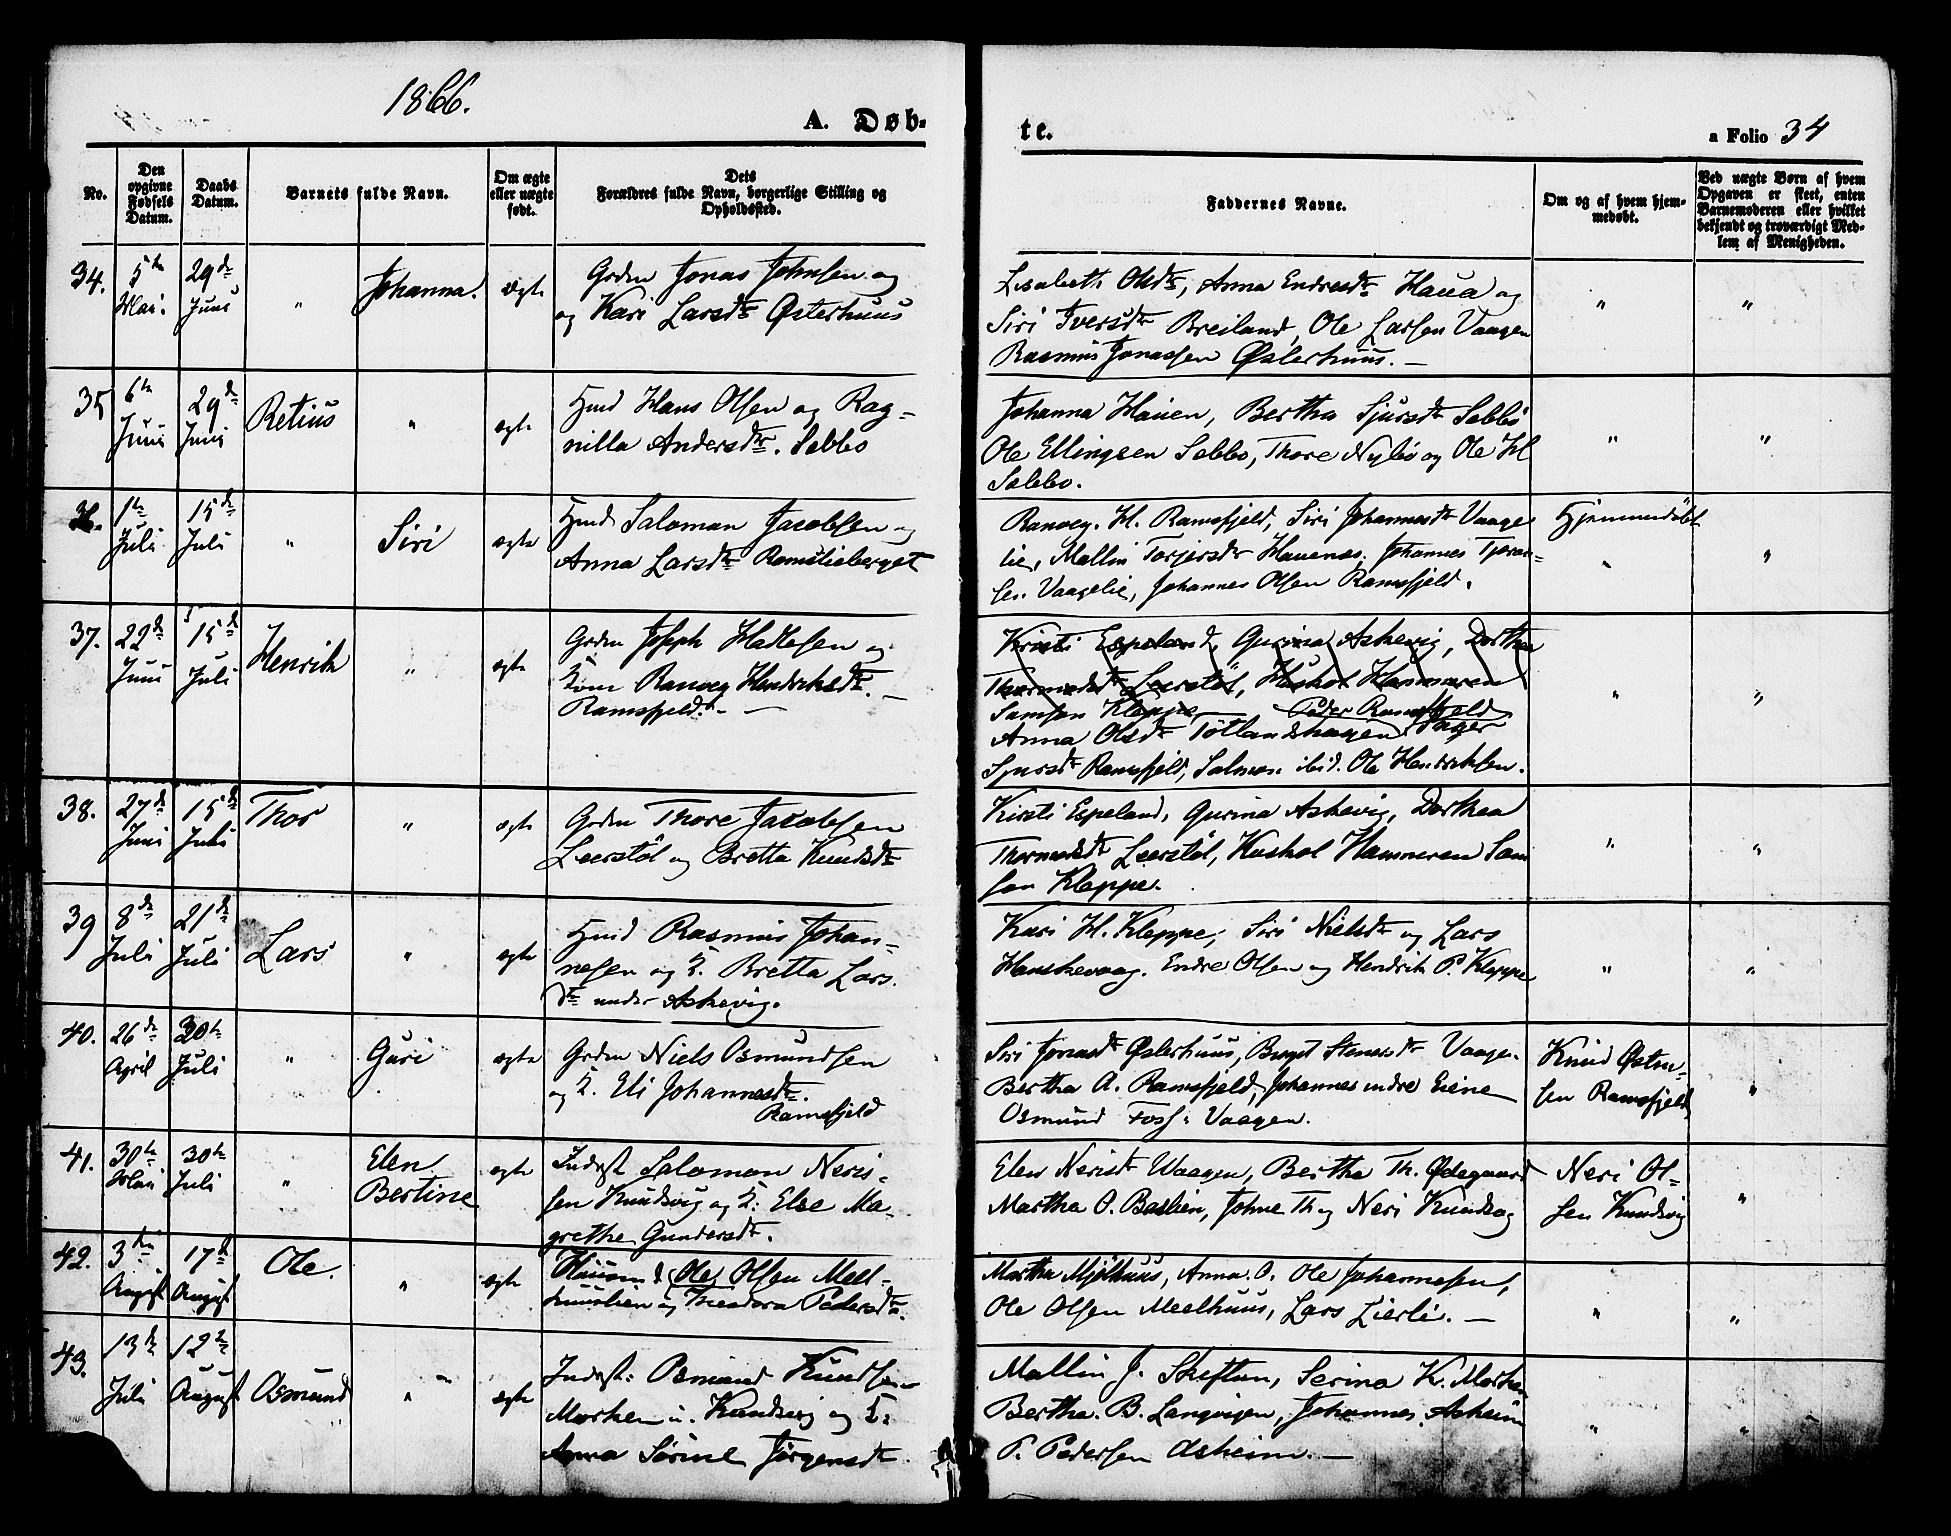 1866.
A. Døb-
te.
a Folio 34
No.
Den opgivne Fødsels Datum.
Daabs Datum.
Barnets fulde Navn.
Om ægte eller uægte født.
Dets
Forældres fulde Navn, borgerlige Stilling og
Opholdssted.
Faddernes Navne.
Om og af hvem hjem-
medøbt.
Ved uægte Børn af hvem
Opgaven er skeet, enten
Barnemoderen eller hvilket
bekjendt og troværdigt Med-
lem af Menigheden.
34. 5te Mai. 29de Juni " Johanna. ægte
Grdm Jonas Johnsen og
og Kari Larsdtr Østerhuus
Lisabeth Olsdtr, Anna Endresdtr Haua og
Siri Iversdtr Breiland, Ole Larsen Vaagen
Rasmus Jonassen Østerhuus. —
" "
35 6te Juni 29de Juni Retius " ægte
Hmd Hans Olsen og Rag-
nilla Andersdtr. Sebbø
Johanna Hauen, Bertha Sjursdtr Sebbø
Ole Ellingsen Sebbø, Thore Nybø og Ole H
Sebbø.
" "
36. 1te Juli 15de Juli " Siri ægte
Hmd Saloman Jacobsen og
Anna Larsdtr Ramslieberget
Ranveg. H. Ramsfjeld, Siri Johannesdtr Vaage
lie, Mallin Torjersdtr Hauenæs, Johannes
sen Vaagelie, Johannes Olsen Ramsfjeld.
Hjemmedøbt
" "
37. 22de Juni 15de Juli Henrik " ægte
Grdm Joseph Hadlesen og
Kone Ranveg Hendriksdtr. —
Ramsfjeld. —
Kirsti Espeland, Gurina Askevig, Dorthea
Thormodsdtr Leerstøl, Huskol Hammeren
Samsen Kleppe — Peder Ramsfjeld
Anna Olsdtr Tøtlandshagen,
Sjursdtr Ramsfjeld, Salmon ibid. Ole Hendriksen.
" "
38. 27de Juni 15de Juli Thor " ægte
Grdm Thore Jacobsen
Leerstøl og Bretta Knudsdtr
Kirsti Espeland, Gurina Askevig, Dorthea
Thormodsdtr Leerstøl, Huskol Hammeren Sam
sen Kleppe.
" "
39 8de Juli 21de Juli Lars " ægte
Hmd Rasmus Johan-
nesen og K. Bretta Lars.
dtr under Askevig.
Kari H. Kleppe, Siri Nielsdtr og Lars
Hanskevaag. Endre Olsen og Hendrik P. Kleppe
" "
40. 26de April 30te Juli " Guri ægte
Grdm Niels Osmundsen
og K. Eli Johannesdtr.
Ramsfjeld
Siri Jonasdtr Østerhuus, Birget Stenersdtr Vaage.
Bertha A. Ramsfjeld, Johannes indre Eiene
Osmund Foss i Vaagen.
Knud Østen-
sen Ramsfjeld
"
41. 30te Mai 30te Juli " Elen Bertine ægte
Inderst Saloman Neris-
sen Knudsvig og K: Else Ma-
grethe Gundersdtr.
Elen Nerisdtr Waagen, Bertha Th. Ødegaard
Martha O. Baslien, Johne Th og Neri Knudsvg
Neri Ol-
sen Knudsvig
"
42. 3die August 17de August Ole. " ægte
Huusmd Ole Olsen Meel-
huuslien og Theodora Pedersdtr.
Martha Mjølhuus, Anna. O. Ole Johannesen,
Ole Olsen Meelhuus, Lars Lierli. —
" "
43. 13de Juli 12te August Osmund " ægte
Inderst: Osmund Knudsen
Morken u. Knudsvig og K:
Anna Sørine Jørgensdtr.
Mallin J. Skeftun, Serina K. Morken
Bertha. B. Langvigen, Johannes Asheim
P. Pedersen Asheim. —
" "